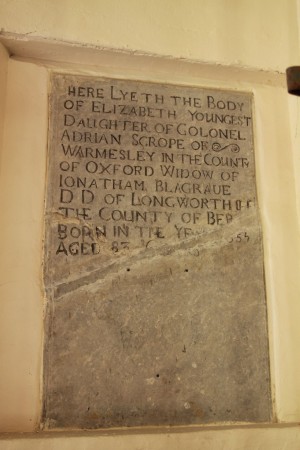 HERE LYETH THE BODY
OF ELIZABETH YOUNGEST
DAUGHTER OF COLONEL
ADRIAN SCROPE OF
WARMESLEY IN THE COUNTY
OF OXFORD WIDOW OF
IONATHAM BLAGRAUE
D D OF LONGWORTH
THE COUNTY OF BER
BORN IN THE 655
AGED 83